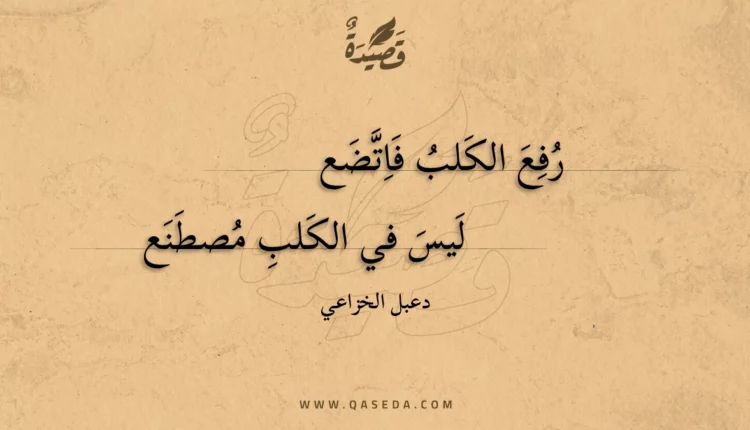 قَصِيدَةٌ
رُفِعَ الكَلبُ فَاِتَّضَع
لَيسَ في الكَلبِ مُصطَنَع
دعبل الخزاعي
WWW.QASEDA.COM